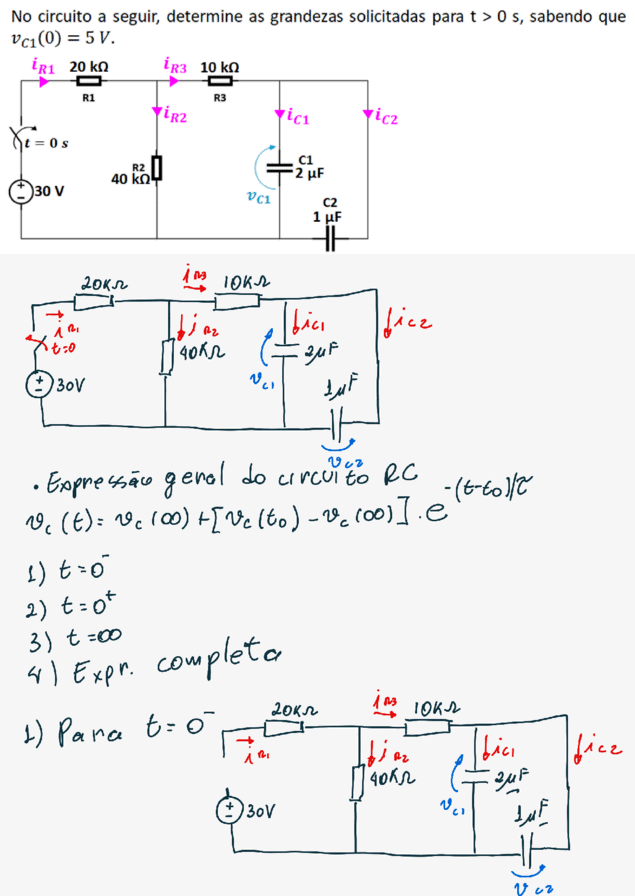 No circuito a seguir, determine as grandezas solicitadas para t > 0 s, sabendo que
v_C1(0) = 5 V.
i_R1 20 kΩ i_R3 10 kΩ
R1 R3
i_R2 i_C1 i_C2
t = 0 s
R2 C1
40 kΩ 2 μF
30 V v_C1
C2
1 μF
20KΩ i_R3 10KΩ
i_R1 i_R2 i_C1 i_C2
t=0 40KΩ 2μF
30V v_C1 1μF
v_C2
• Expressão geral do circuito RC
v_c(t) = v_c(∞) + [v_c(t₀) - v_c(∞)] . e^-(t-t₀)/τ
1) t=0⁻
2) t=0⁺
3) t=∞
4) Expr. completa
1) Para t=0⁻
20KΩ i_R3 10KΩ
i_R1 i_R2 i_C1 i_C2
40KΩ 2μF
30V v_C1 1μF
v_C2